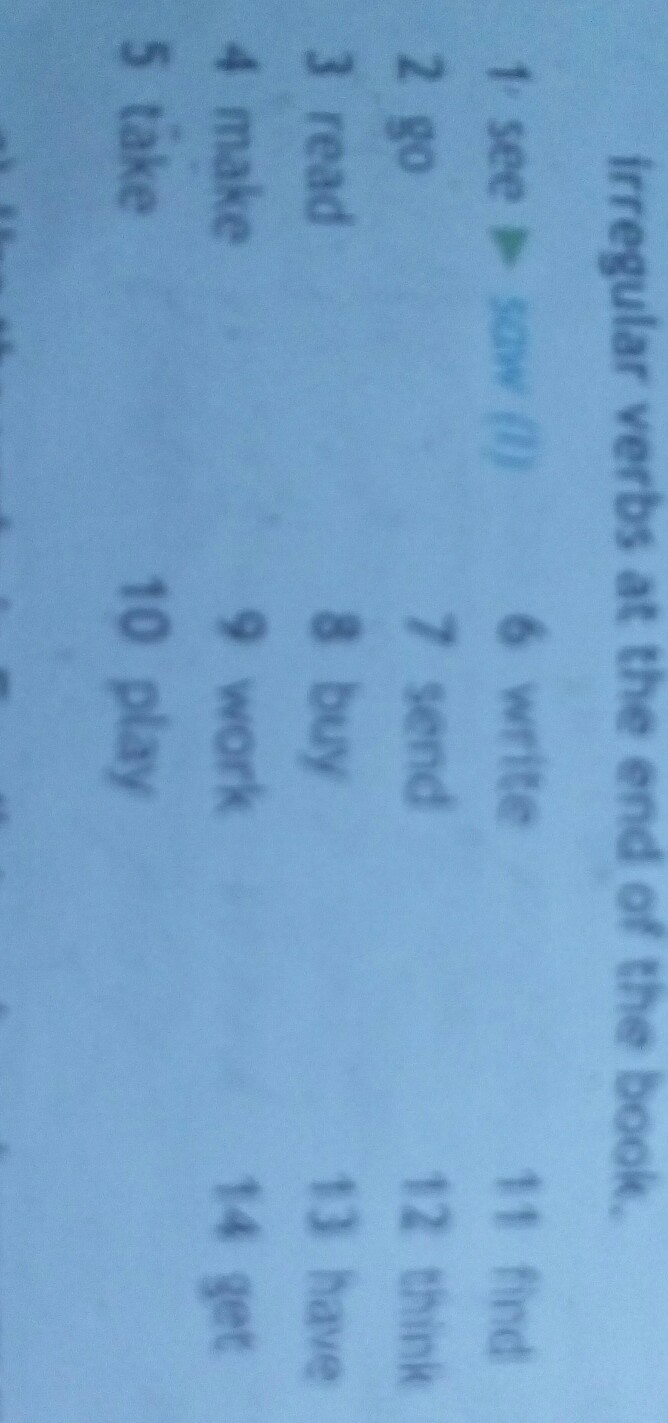 irregular verbs at the end of the book.
1 see ▶ saw (I) 6 write 11 find
2 go 7 send 12 think
3 read 8 buy 13 have
4 make 9 work 14 get
5 take 10 play